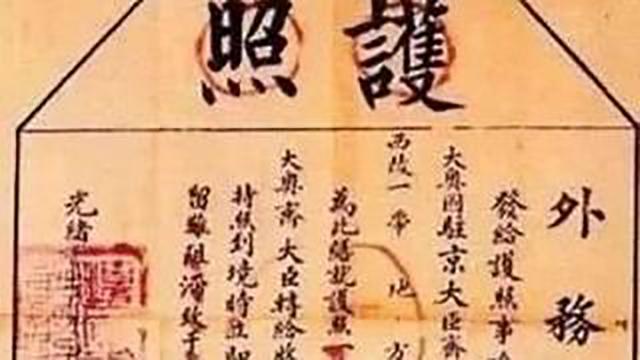 護照
外務
發給護照事
大奧國駐京大臣齊
西一帶地方
為此繕就護照一
大奧齊大臣轉給
持照到境時立即
留難阻滯致干
光緒